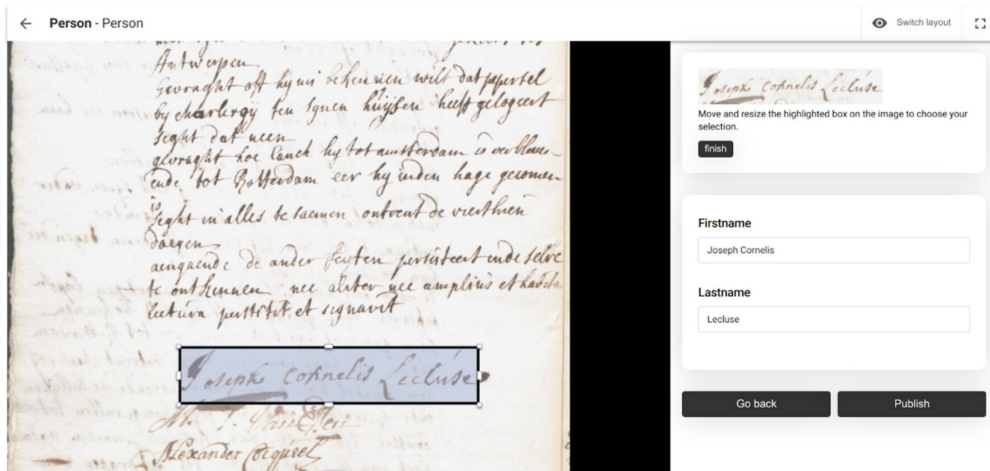 Person - Person
Switch layout
Antwerpen
gevraght oft hy nu bekennen wilt dat
by ten synen huysen heeft gelogeert
seght dat neen
gevraght hoe lanck hy tot amsterdam is
ende tot Rotterdam eer hy inden hage gecomen
is
seght in alles te saemen ontrent de vierthien
daegen
aengaende de ander persisteert ende
te ontkennen nec aliter nec amplius et habita
lectura perstitit et signavit
Joseph Cornelis Lecluse
Alexander Cocqueel
Joseph Cornelis Lecluse
Move and resize the highlighted box on the image to choose your
selection.
finish
Firstname
Joseph Cornelis
Lastname
Lecluse
Go back
Publish